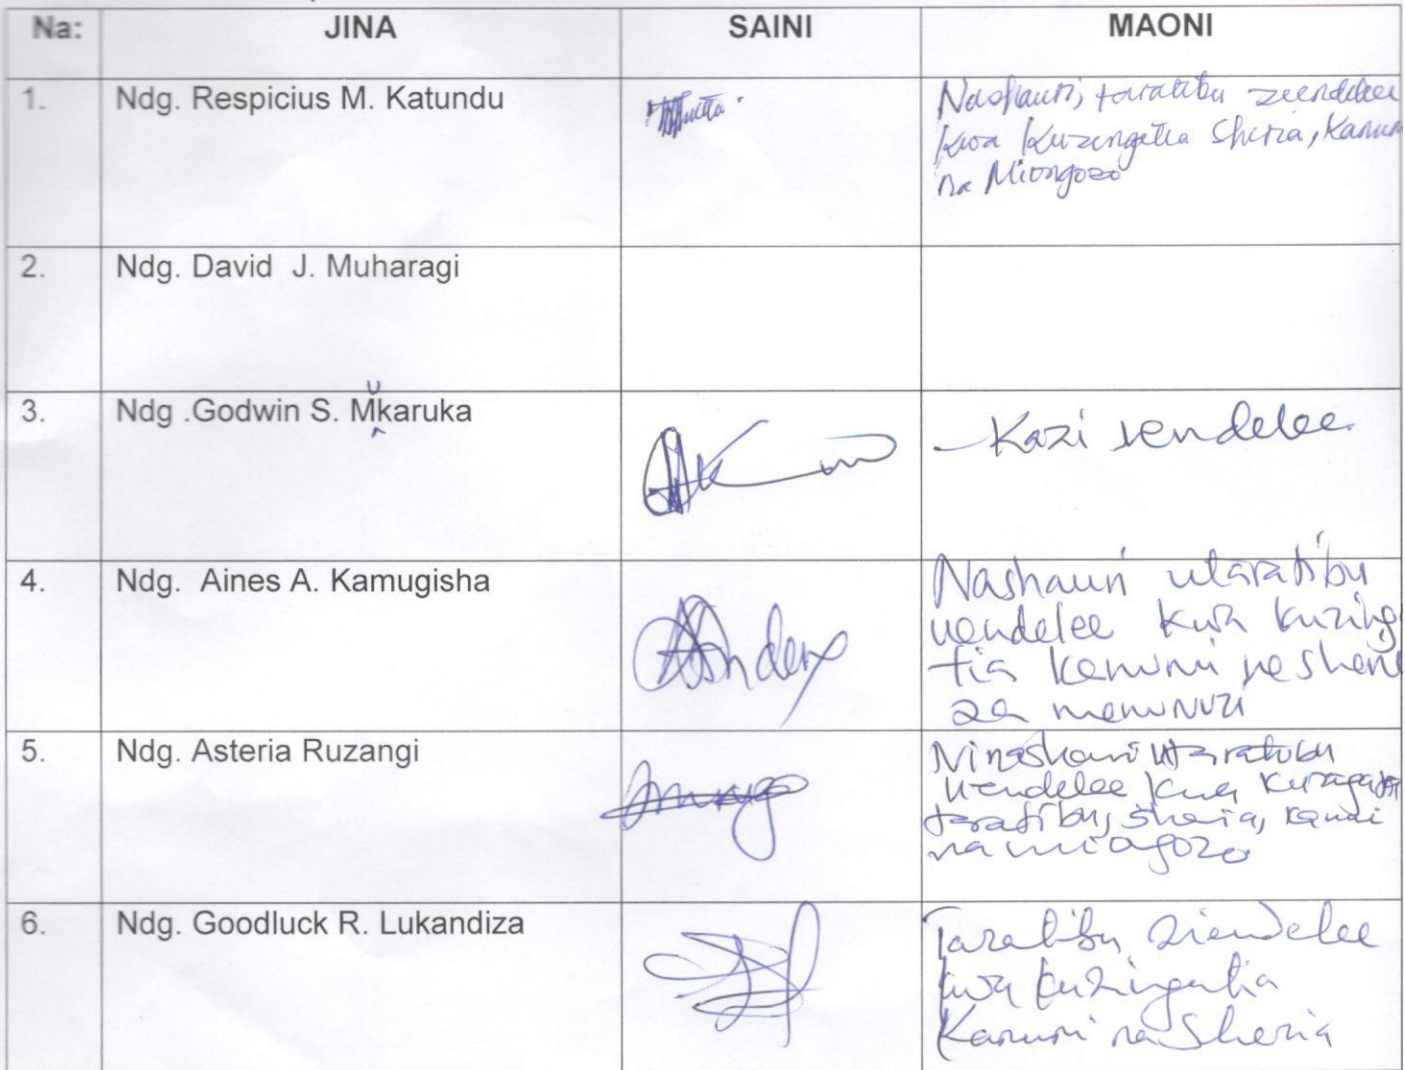 Na: JINA SAINI MAONI
1. Ndg. Respicius M. Katundu
Nashauri, taratibu ziendelee
kwa kuzingatia Sheria, Kanuni
na Miongozo
2. Ndg. David J. Muharagi
3. Ndg .Godwin S. Mukaruka
- Kazi iendelee
4. Ndg. Aines A. Kamugisha
Nashauri utaratibu
uendelee kwa kuzing
tia kanuni na sheri
za manunuzi
5. Ndg. Asteria Ruzangi
Ninashauri utaratibu
uendelee kwa
taratibu, sheria, kanuni
na miongozo
6. Ndg. Goodluck R. Lukandiza
Taratibu ziendelee
kwa kuzingatia
Kanuni na Sheria